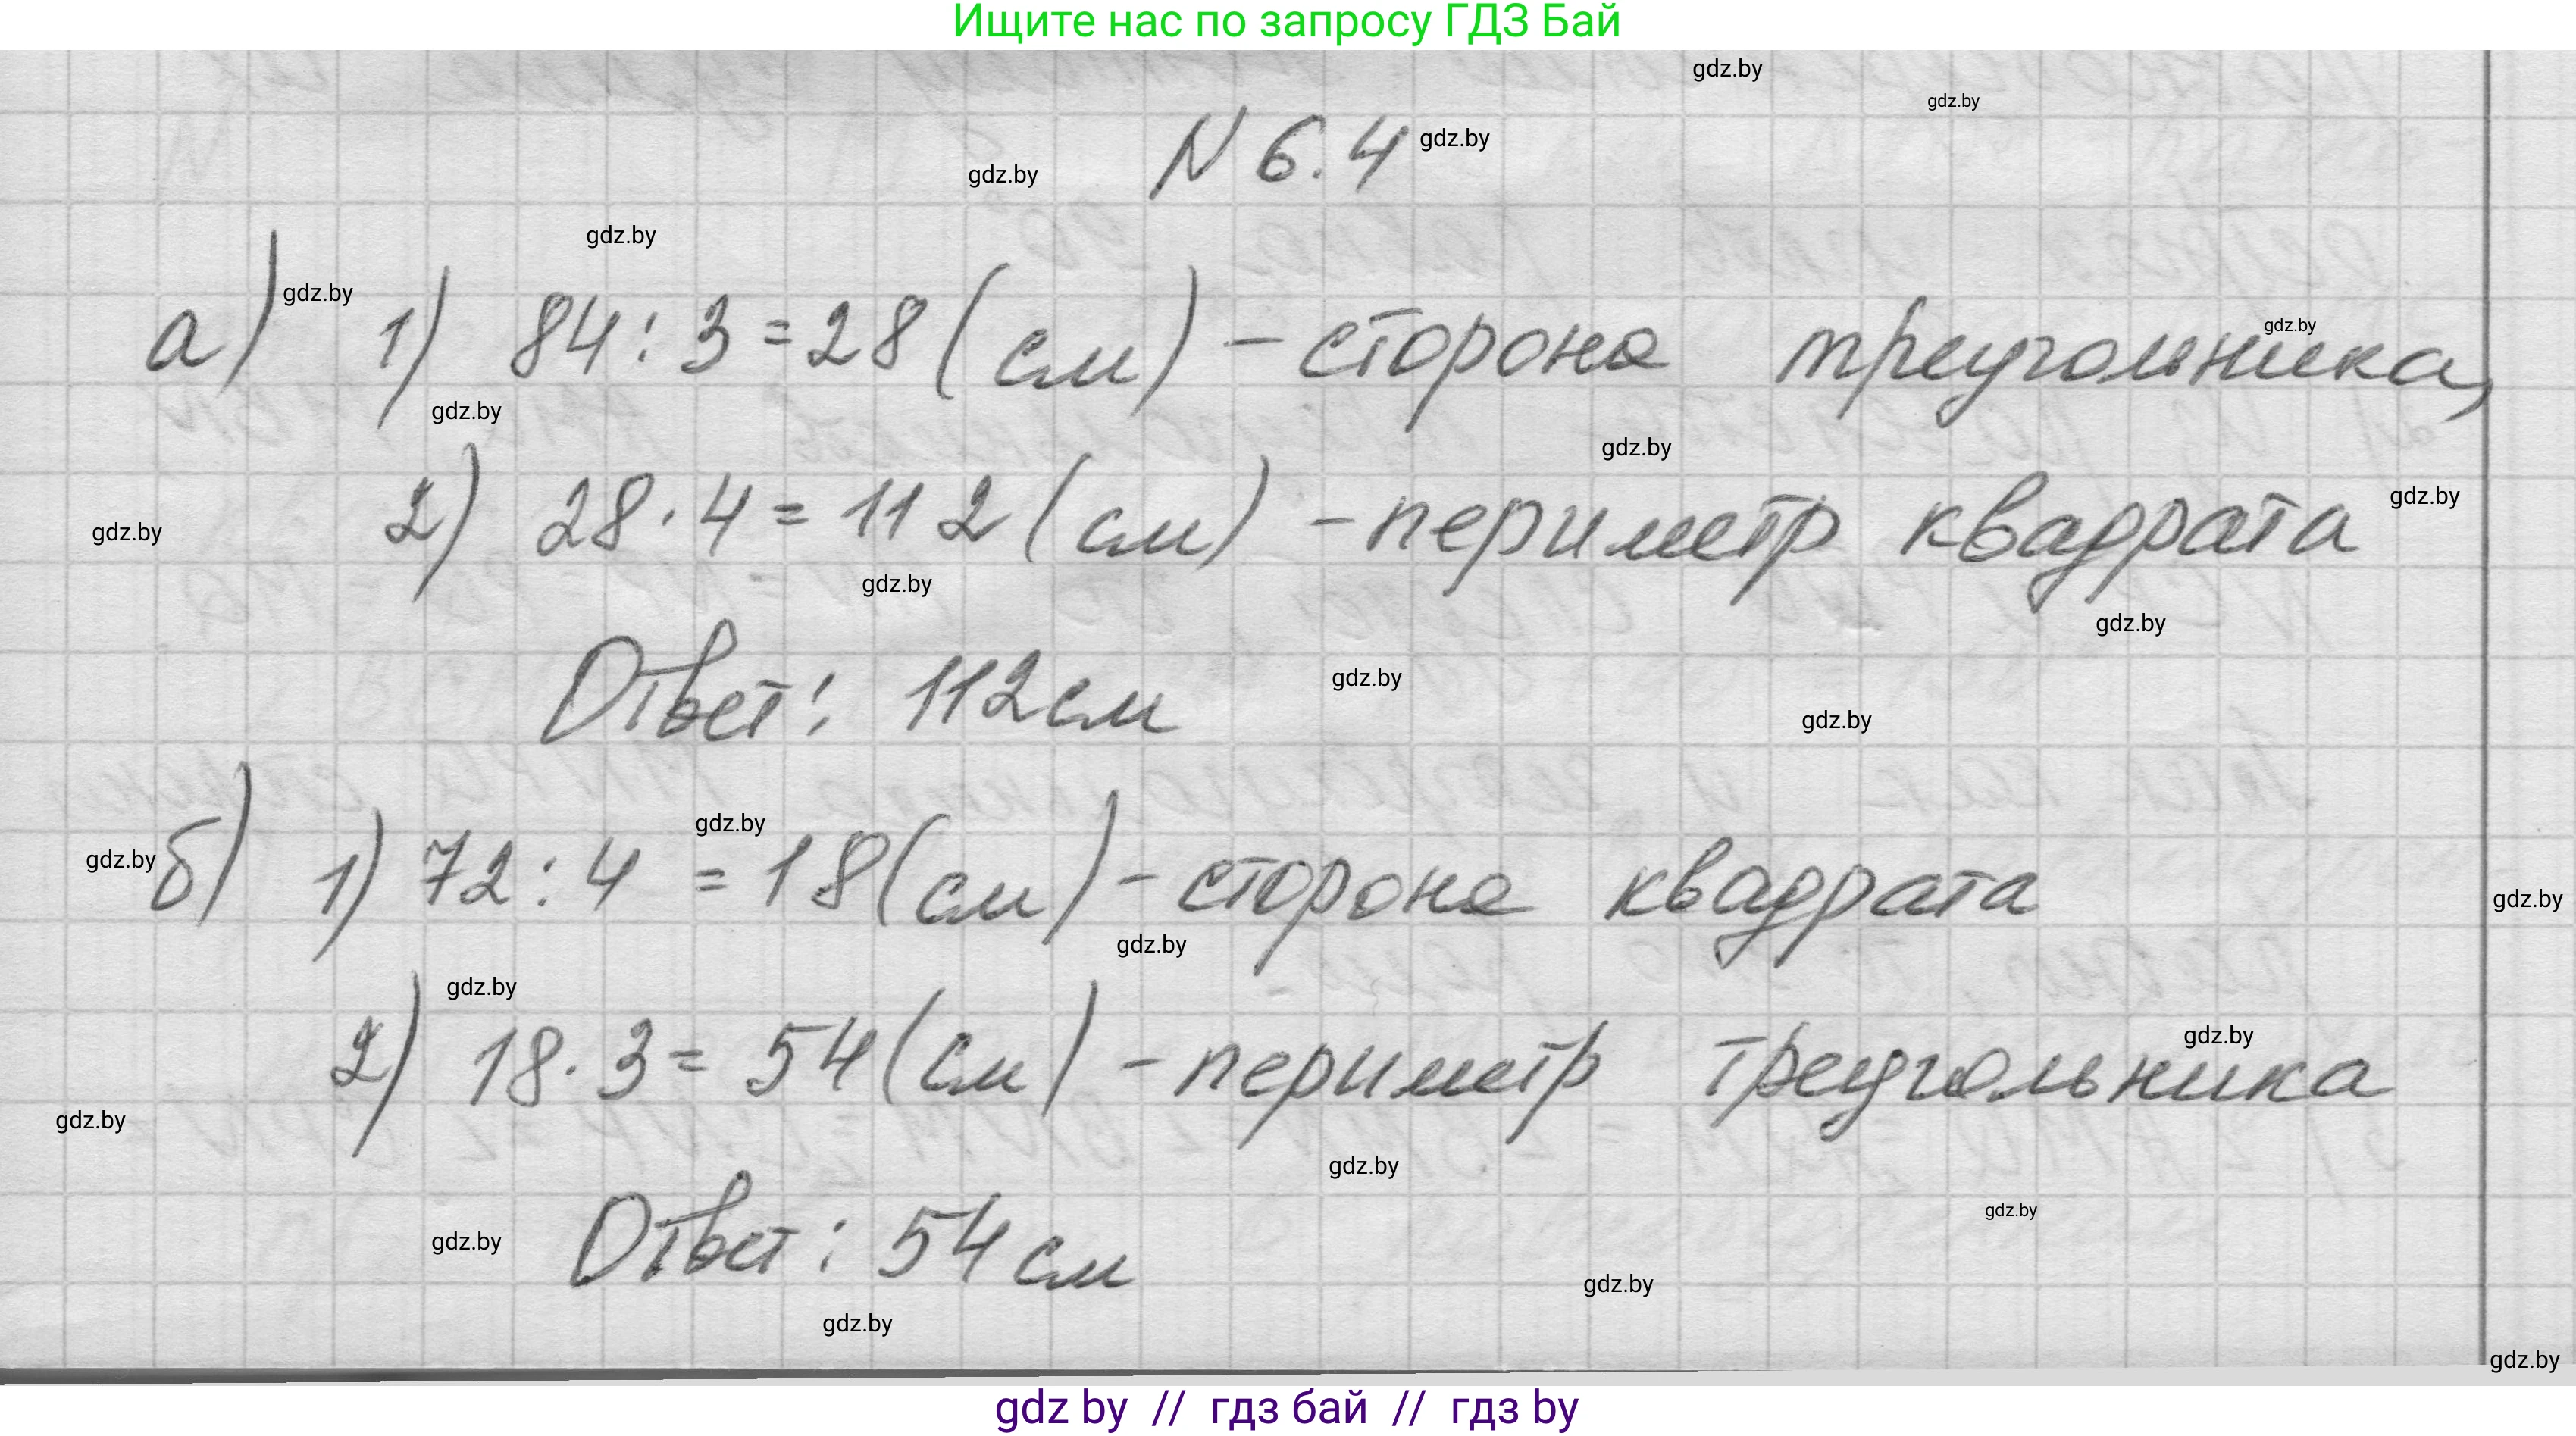 Ищите нас по запросу ГДЗ Бай
gdz.by
gdz.by
N 6.4 gdz.by
gdz.by
gdz.by
gdz.by
а) 1) 84 : 3 = 28 (см) - сторона треугольника,
gdz.by
gdz.by
gdz.by
gdz.by
2) 28 · 4 = 112 (см) - периметр квадрата
gdz.by
gdz.by
gdz.by
Ответ: 112 см
gdz.by
gdz.by
gdz.by
б) 1) 72 : 4 = 18 (см) - сторона квадрата
gdz.by
gdz.by
gdz.by
gdz.by
2) 18 · 3 = 54 (см) - периметр треугольника
gdz.by
gdz.by
gdz.by
gdz.by
Ответ: 54 см
gdz.by
gdz.by
gdz.by
gdz.by
gdz by // гдз бай // гдз by